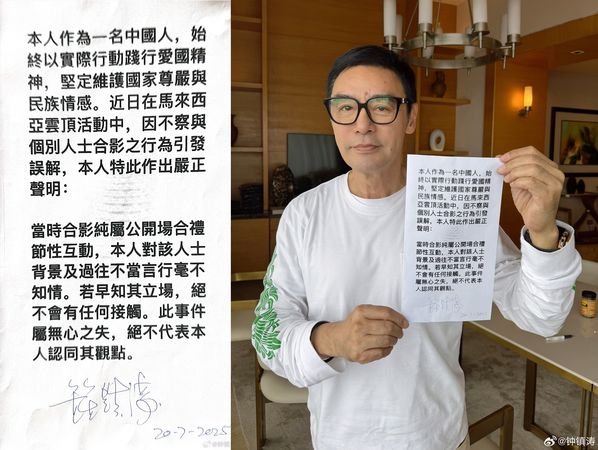 本人作為一名中國人，始
終以實際行動踐行愛國精
神，堅定維護國家尊嚴與
民族情感。近日在馬來西
亞雲頂活動中，因不察與
個別人士合影之行為引發
誤解，本人特此作出嚴正
聲明：
當時合影純屬公開場合禮
節性互動，本人對該人士
背景及過往不當言行毫不
知情。若早知其立場，絕
不會有任何接觸。此事件
屬無心之失，絕不代表本
人認同其觀點。
鍾鎮濤
20-7-2025
@钟镇涛
本人作為一名中國人，始
終以實際行動踐行愛國精
神，堅定維護國家尊嚴與
民族情感。近日在馬來西
亞雲頂活動中，因不察與
個別人士合影之行為引發
誤解，本人特此作出嚴正
聲明：
當時合影純屬公開場合禮
節性互動，本人對該人士
背景及過往不當言行毫不
知情。若早知其立場，絕
不會有任何接觸。此事件
屬無心之失，絕不代表本
人認同其觀點。
鍾鎮濤
20-7-2025
@钟镇涛